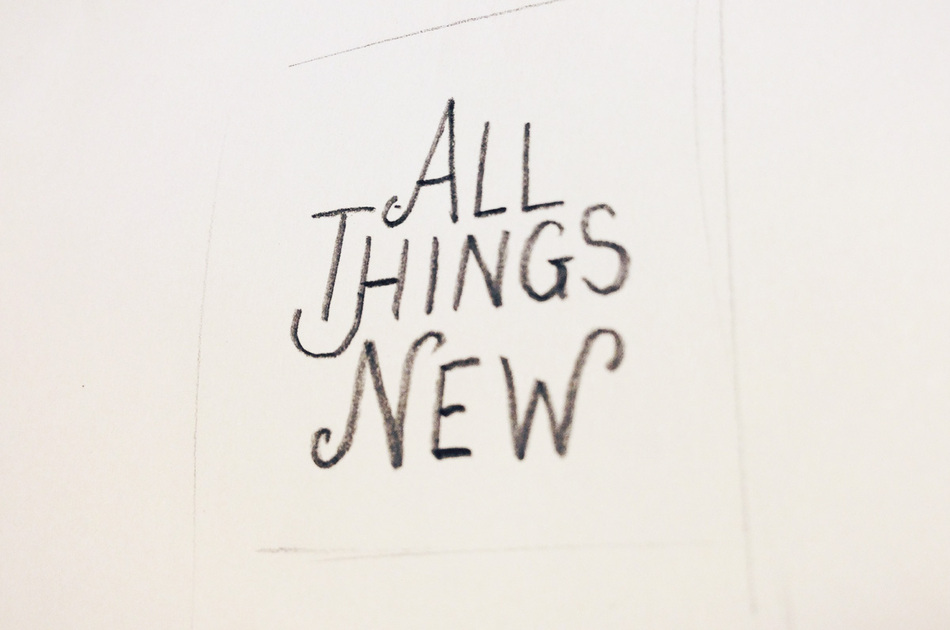 ALL
THINGS
NEW